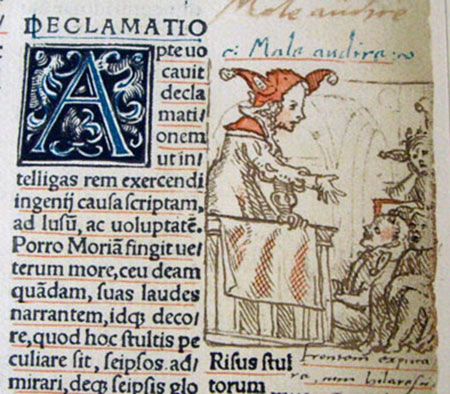 DECLAMATIO
Male audire
c: Male audire:
Apte uo
cauit
decla
mati⸗
onem
ut in⸗
telligas rem exercendi
ingenij causa scriptam,
ad lusũ, ac uoluptatẽ.
Porro Moriã fingit ue⸗
terum more, ceu deam
quãdam, suas laudes
narrantem, idqꝫ deco⸗
re, quod hoc stultis pe
culiare sit, seipsos ad⸗
mirari, deqꝫ seipsis glo
Risus stul⸗
torum
Frontem